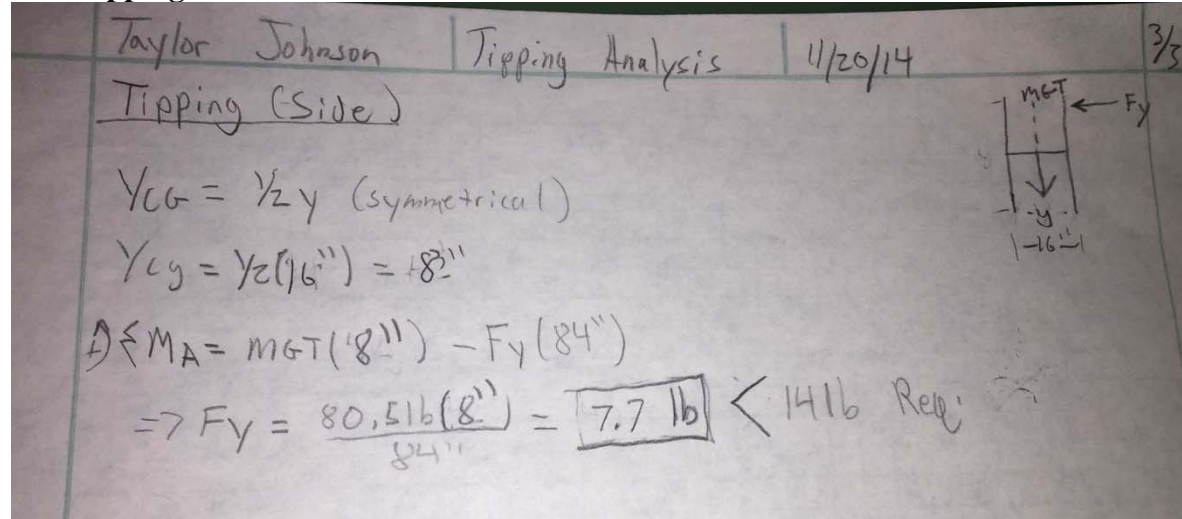 Taylor Johnson | Tipping Analysis | 11/20/14 3/3
Tipping (Side)
MGT ← Fy
YCG = 1/2 y (symmetrical)
Ycg = 1/2(16") = 8"
-y-
|-16"-|
ΣMA = MGT(8") - Fy(84")
=> Fy = 80.5lb(8")/84" = 7.7 lb < 14lb Req.